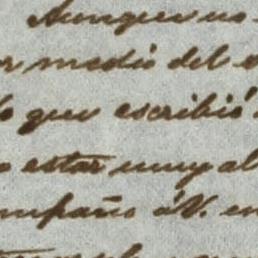 Aunque no
medio del
que escribió
estar muy al
á V. en